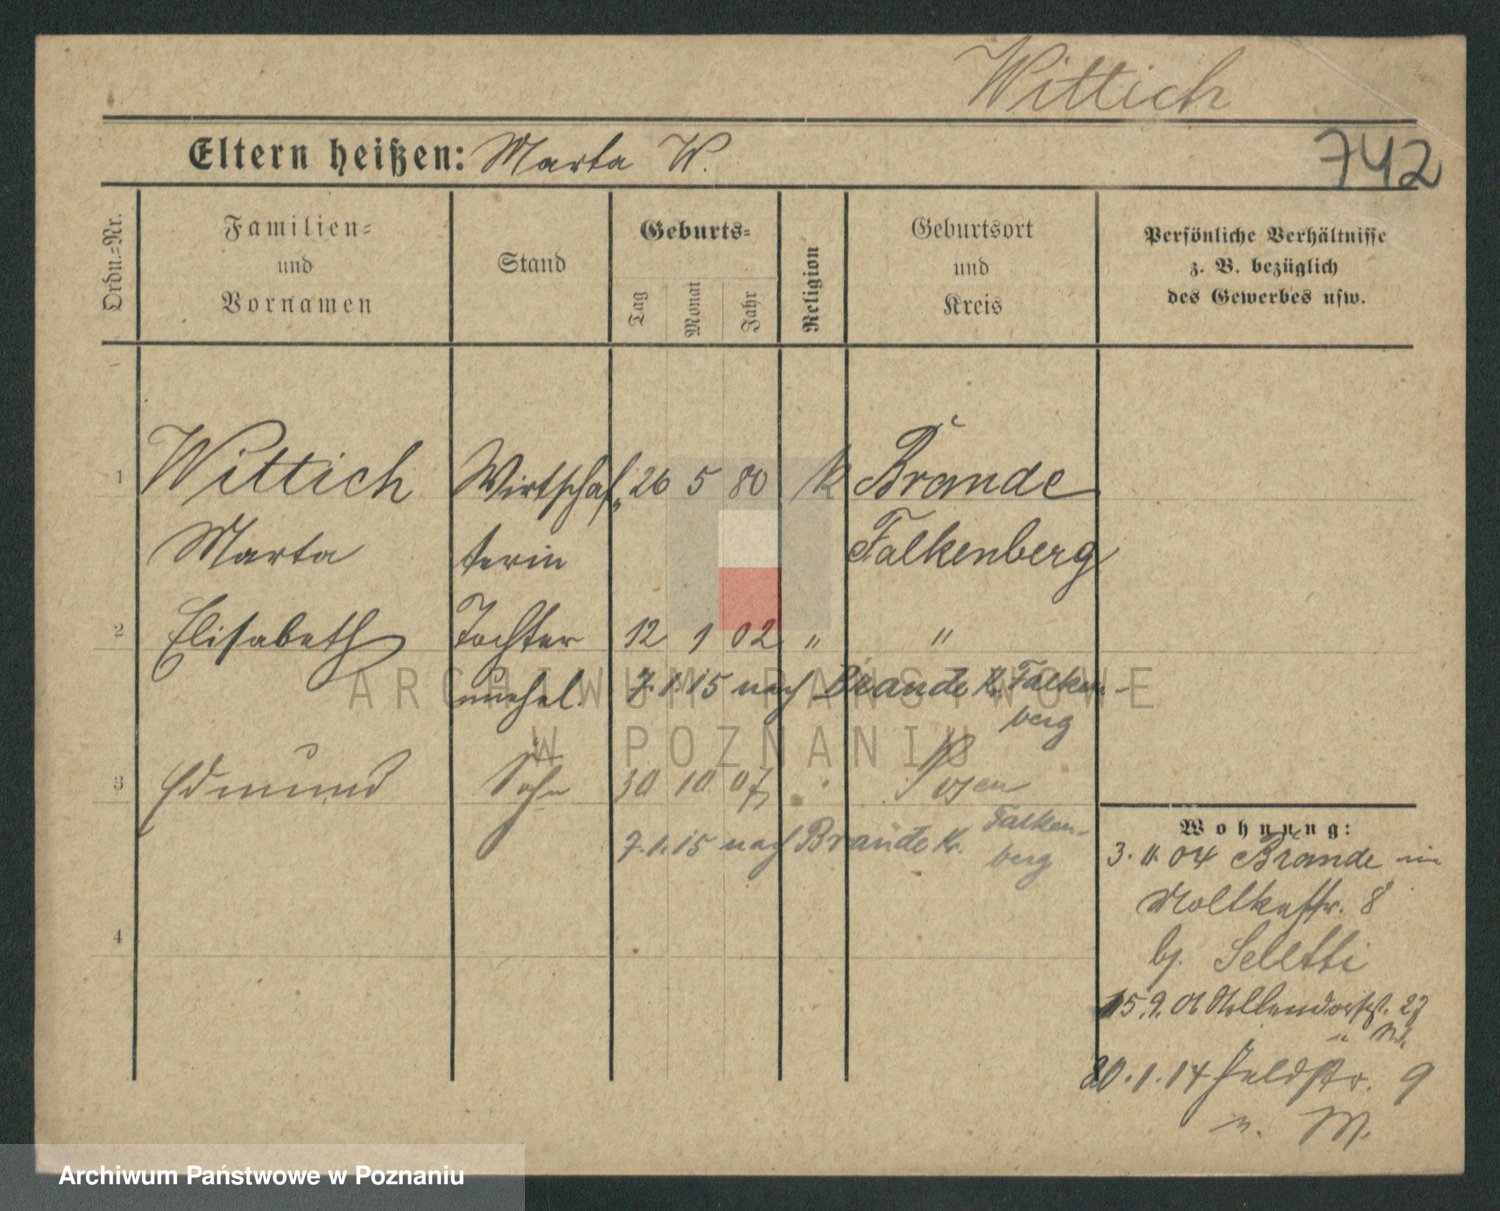 Wittich
Eltern heißen: Marta W.
742
Ordn.-Nr.
Familien-
und
Vornamen
Stand
Geburts-
Tag
Monat
Jahr
Religion
Geburtsort
und
Kreis
Persönliche Verhältnisse
z. B. bezüglich
des Gewerbes usw.
1 Wittich Wirtschaf- 26 5 80 k Brande
Marta terin Falkenberg
2 Elisabeth Tochter 12 1 02 " "
unehel. 7.1.15 nach Brande Kr. Falken-
berg
3 Edmund Sohn 30 10 07 " Posen
7.1.15 nach Brande Kr. Falken-
berg
4
Wohnung:
3. 11. 04 Brande in
Moltkestr. 8
bj. Seletti
15.9.01 27
20.1.14 Feldstr. 9
n. M.
ARCHIWUM PAŃSTWOWE
W POZNANIU
Archiwum Państwowe w Poznaniu